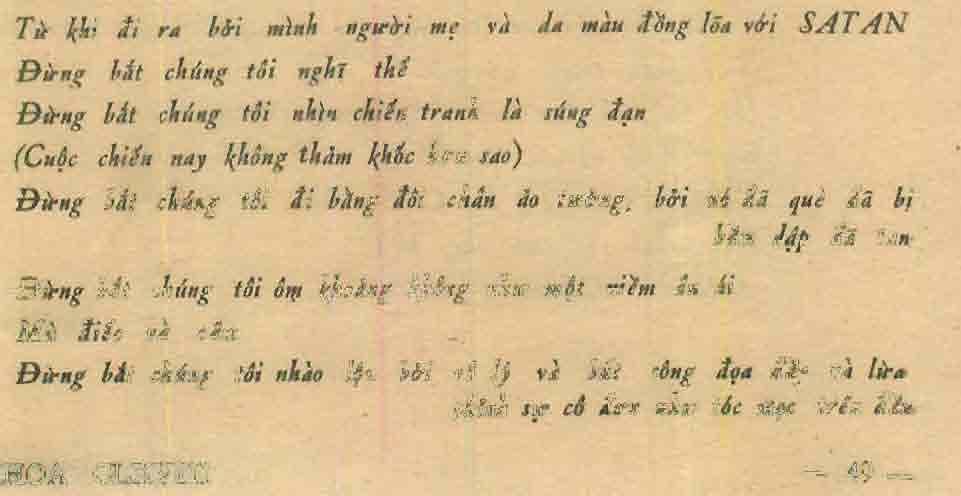 Từ khi đi ra bởi mình người mẹ và da màu đồng lõa với SATAN
Đừng bắt chúng tôi nghĩ thế
Đừng bắt chúng tôi nhìn chiến tranh là súng đạn
(Cuộc chiến nay không thảm khốc hơn sao)
Đừng bắt chúng tôi đi bằng đôi chân ảo tưởng, bởi nó đã què đã bị
bắn dập đã tan
Đừng bắt chúng tôi ôm khoảng không như một niềm ân ái
Mù điếc và câm
Đừng bắt chúng tôi nhào lộn bởi vô lý và bất công đọa đầy và lừa
sự cô đơn như tóc mọc trên đầu
HOA
— 49 —